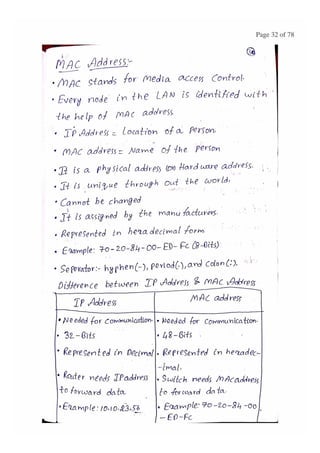 Page 32 of 78
MAC Address:-
• MAC stands for Media access Control.
• Every node in the LAN is identified with
the help of MAC address
• IP Address = Location of a Person.
• MAC address = Name of the Person
• It is a physical address (or) Hardware address.
• It is unique through out the world.
• Cannot be changed
• It is assigned by the manufacturers.
• Represented in hexadecimal form
• Example: 70-20-84-00-ED-FC (8-Bits)
• Seperator:- hyphen(-), period(.), and colon(:).
Difference between IP Address & MAC Address
IP Address
MAC address
• Needed for communication
• 32-Bits
• Represented in Decimal
• Router needs IPaddress
to forward data.
• Example: 10.10.23.56
• Needed for communication.
• 48-Bits
• Represented in hexadec-
-imal.
• Switch needs MACaddress
to forward data.
• Example: 70-20-84-00
-ED-FC